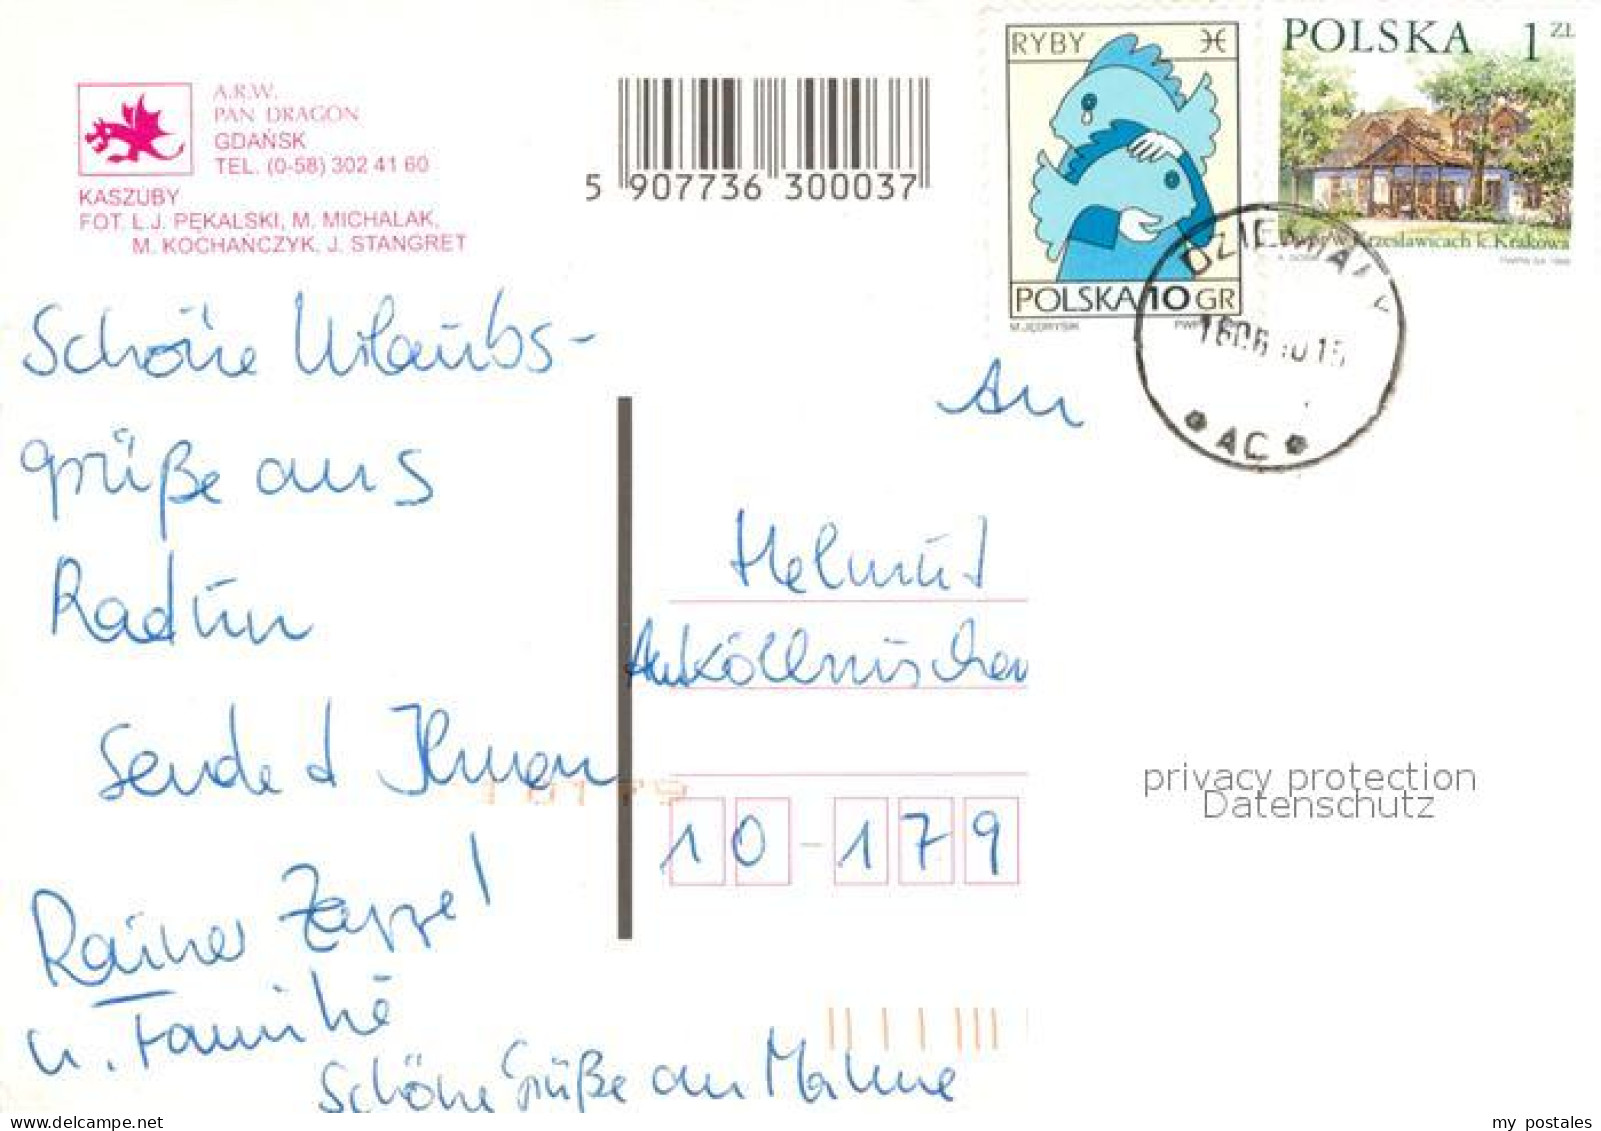 A.R.W.
PAN DRAGON
GDAŃSK
TEL. (0-58) 302 41 60
KASZUBY
FOT. L.J. PĘKALSKI, M. MICHALAK,
M. KOCHAŃCZYK, J. STANGRET
5 907736 300037
RYBY
POLSKA 10 GR
M. JĘDRYSIK PWPW
POLSKA 1 ZŁ
Dwór w Krzesławicach k. Krakowa
DZIEMIANY
AC
Schöne Urlaubs-
grüße aus
Radun
sendet Ihnen
Rainer Zeppel
u. Familie
Schöne Grüße an Malwe
An
Helmut
Ankölnischen
10-179
privacy protection
Datenschutz
my postales